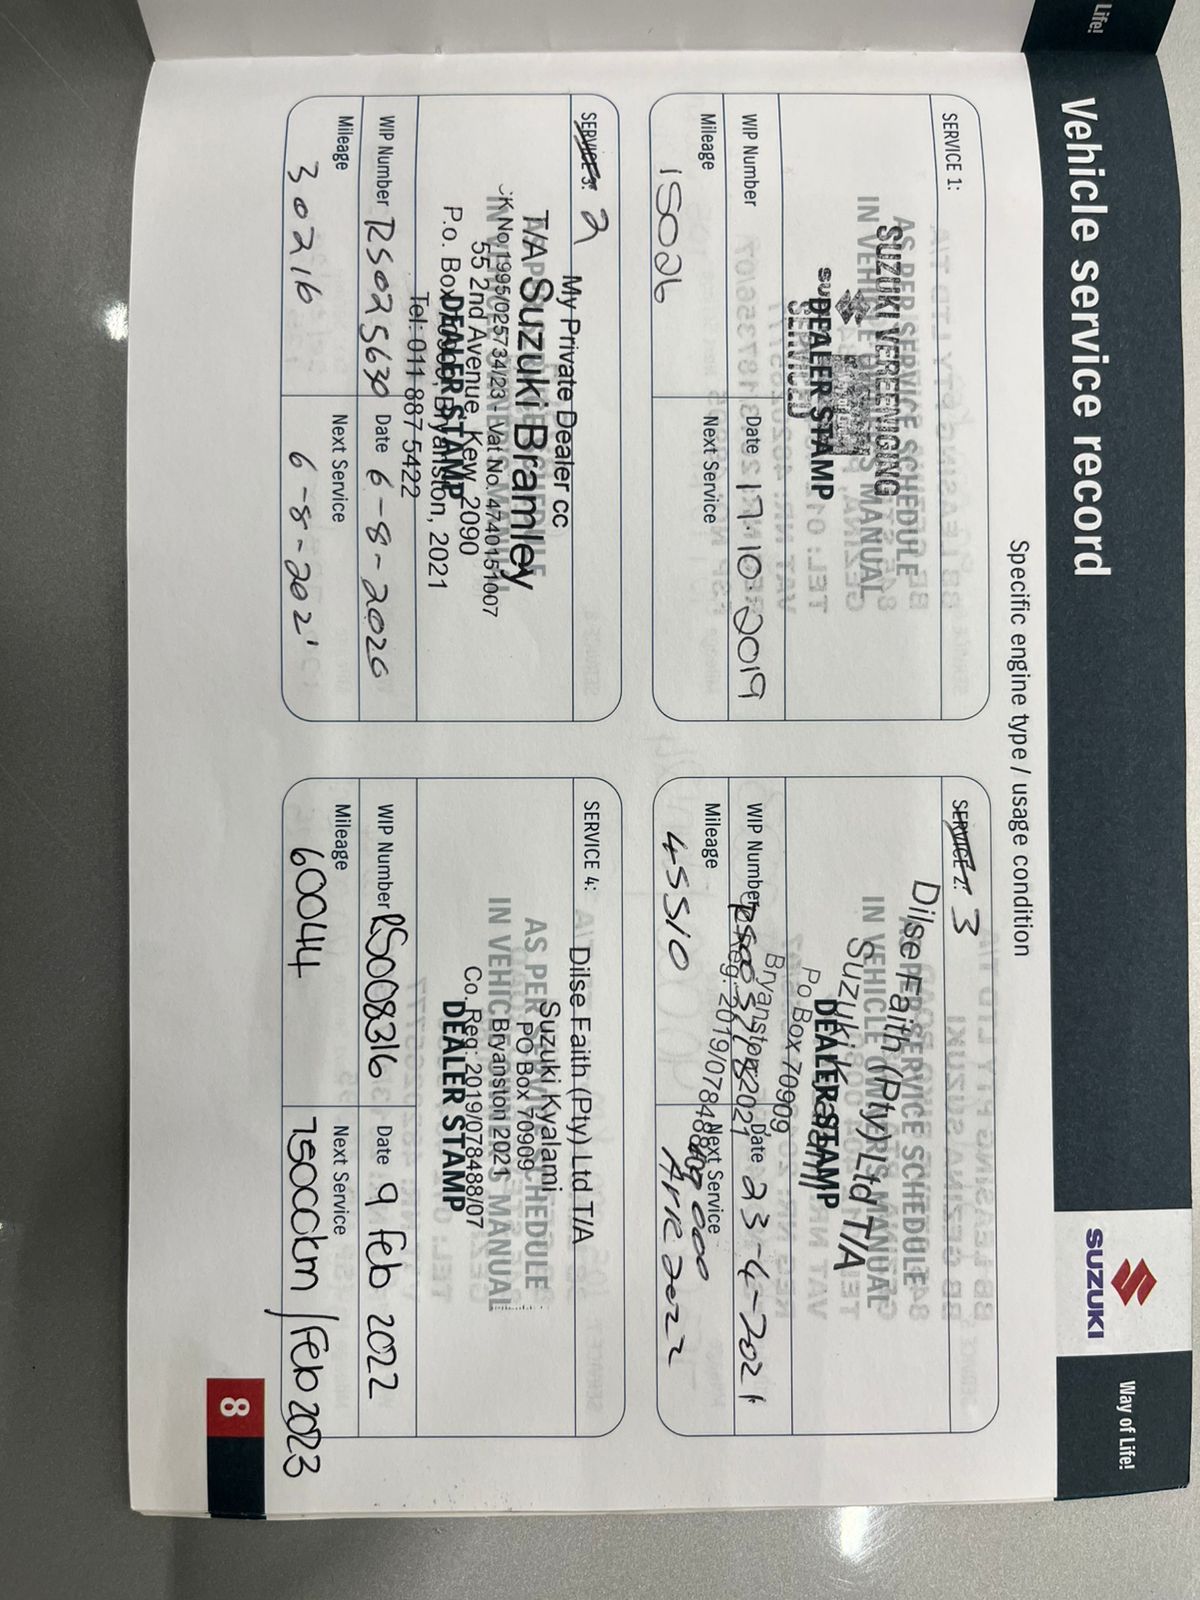 Life!
Vehicle service record
SUZUKI
Way of Life!
Specific engine type / usage condition
SERVICE 1:
AS PER SERVICE SCHEDULE
IN VEHICLE OWNER'S MANUAL
SUZUKI VEREENIGING
DEALER STAMP
SERVICED
WIP Number
Date 17-10-2019
Mileage
15026
Next Service
SERVICE 2: 3
Dilse Faith (Pty) Ltd T/A
AS PER SERVICE SCHEDULE
IN VEHICLE OWNER'S MANUAL
Suzuki Kyalami
DEALER STAMP
Po Box 70909
Bryanston 2021
Reg: 2019/078488/07
WIP Number
Date 23-4-2021
Mileage
45510
Next Service
2022
SERVICE 3: 2
My Private Dealer cc
T/A Suzuki Bramley
AS PER SERVICE SCHEDULE
IN VEHICLE OWNER'S MANUAL
CK No. 1995/025734/23 - Vat No. 4740151007
55 2nd Avenue, Kew, 2090
P.o. Box Bryanston, 2021
DEALER STAMP
Tel: 011 887 5422
WIP Number RS025630
Date 6-8-2020
Mileage
30216
Next Service
6-8-2021
SERVICE 4:
Dilse Faith (Pty) Ltd T/A
Suzuki Kyalami
AS PER SERVICE SCHEDULE
PO Box 70909
IN VEHICLE OWNER'S MANUAL
Bryanston 2021
Co. Reg: 2019/078488/07
DEALER STAMP
WIP Number RS008316
Date 9 Feb 2022
Mileage
60044
Next Service
75000km / Feb 2023
8